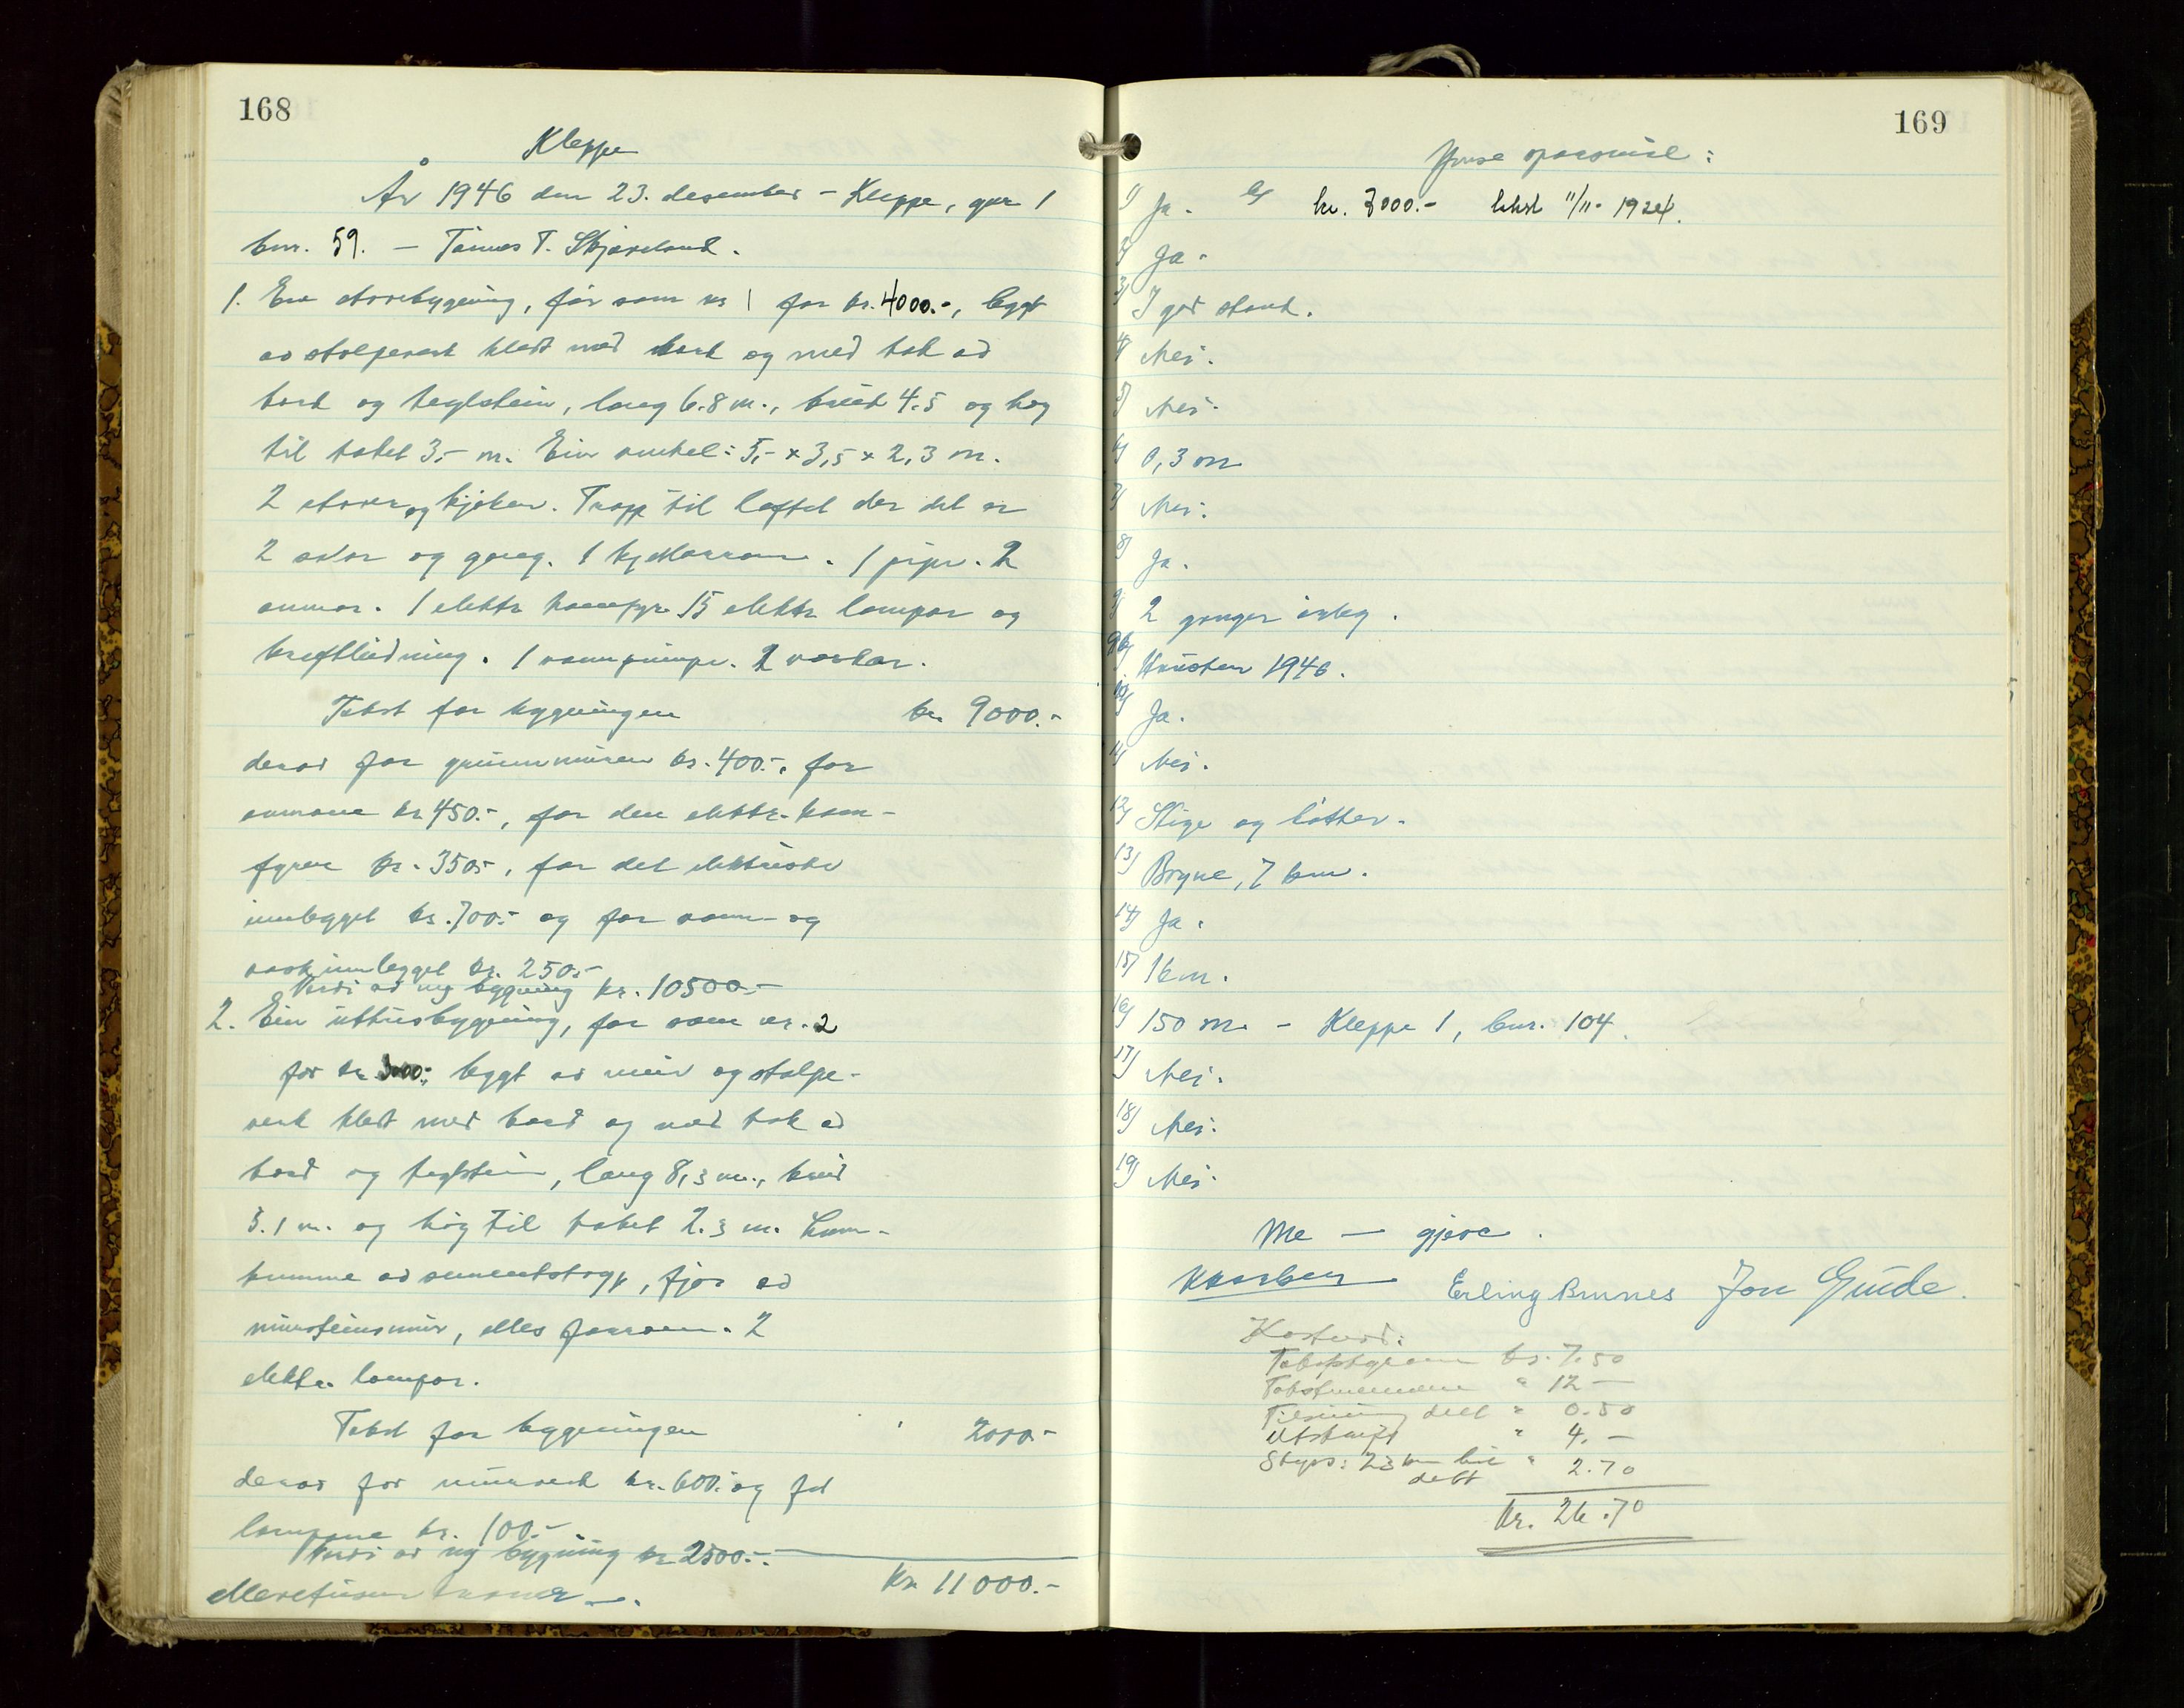 168
Kleppe
År 1946 den 23. desember – Kleppe, gnr 1
bnr. 59. – Tønnes T. Skjæveland.
1. Ein stovebygning, før som nr 1 for kr. 4000.-, bygt
av stolpeverk kledt med bord og med tak av
bord og teglstein, lang 6.8 m., breid 4.5 og høg
til taket 3,- m. Ein omkel: 5,- x 3,5 x 2,3 m.
2 stover og kjøken. Trapp til loftet der det er
2 og gang. 1 kjellarrom. 1 pipe. 2
omnar. 1 elektr komfyr. 15 elektr lampor og
kraftleidning. 1 vannpumpe. 2 vaskar.
Takst for bygningen kr. 9000.-
derav for grunnmuren kr. 400.-, for
omnane kr 450.-, for den elektr. kom-
fyren kr. 350,-, for det elektriske
innlegget kr. 700.- og for vann- og
vaskinnlegget kr. 250,-
Verdi av ny bygning kr. 10500.-
2. Ein uthusbygning, før som nr. 2
for kr 3000.-, bygt av mur og stolpe-
verk kledt med bord og med tak av
bord og teglstein, lang 8,3 m., breid
5.1 m. og høg til taket 2.3 m. Lann-
kumme av sementstøyp, fjøs av
mursteinsmur, elles . 2
elektr. lampor.
Takst for bygningen " 2000.-
derav for murverk kr. 600.- og for
lampone kr. 100.-
Verdi av ny bygning kr 2500.-.
Kr 11000.-
Ellevetusen kroner –.
169
Ymse spørsmål:
1) Ja. b) kr. 7000.- takst 11/11- 1924.
2) Ja.
3) I god stand.
4) Nei.
5) Nei.
6) 0,3 m
7) Nei.
8) Ja.
9) 2 gonger årleg.
9b) Hausten 1946.
10) Ja.
11) Nei.
12) Stige og bøtter.
13) Bryne, 7 km.
14) Ja.
15) 1 km.
16) 150 m. – Kleppe 1, bnr. 104.
17) Nei.
18) Nei.
19) Nei.
Me – gjeve.
Erling Brunes Jon Guide.
Kostnad:
kr. 7.50
Takstmennene " 12 –
delt " 0.50
Utskrift " 4. –
Skyss: 23 km bil " 2.70
delt
Kr. 26.70